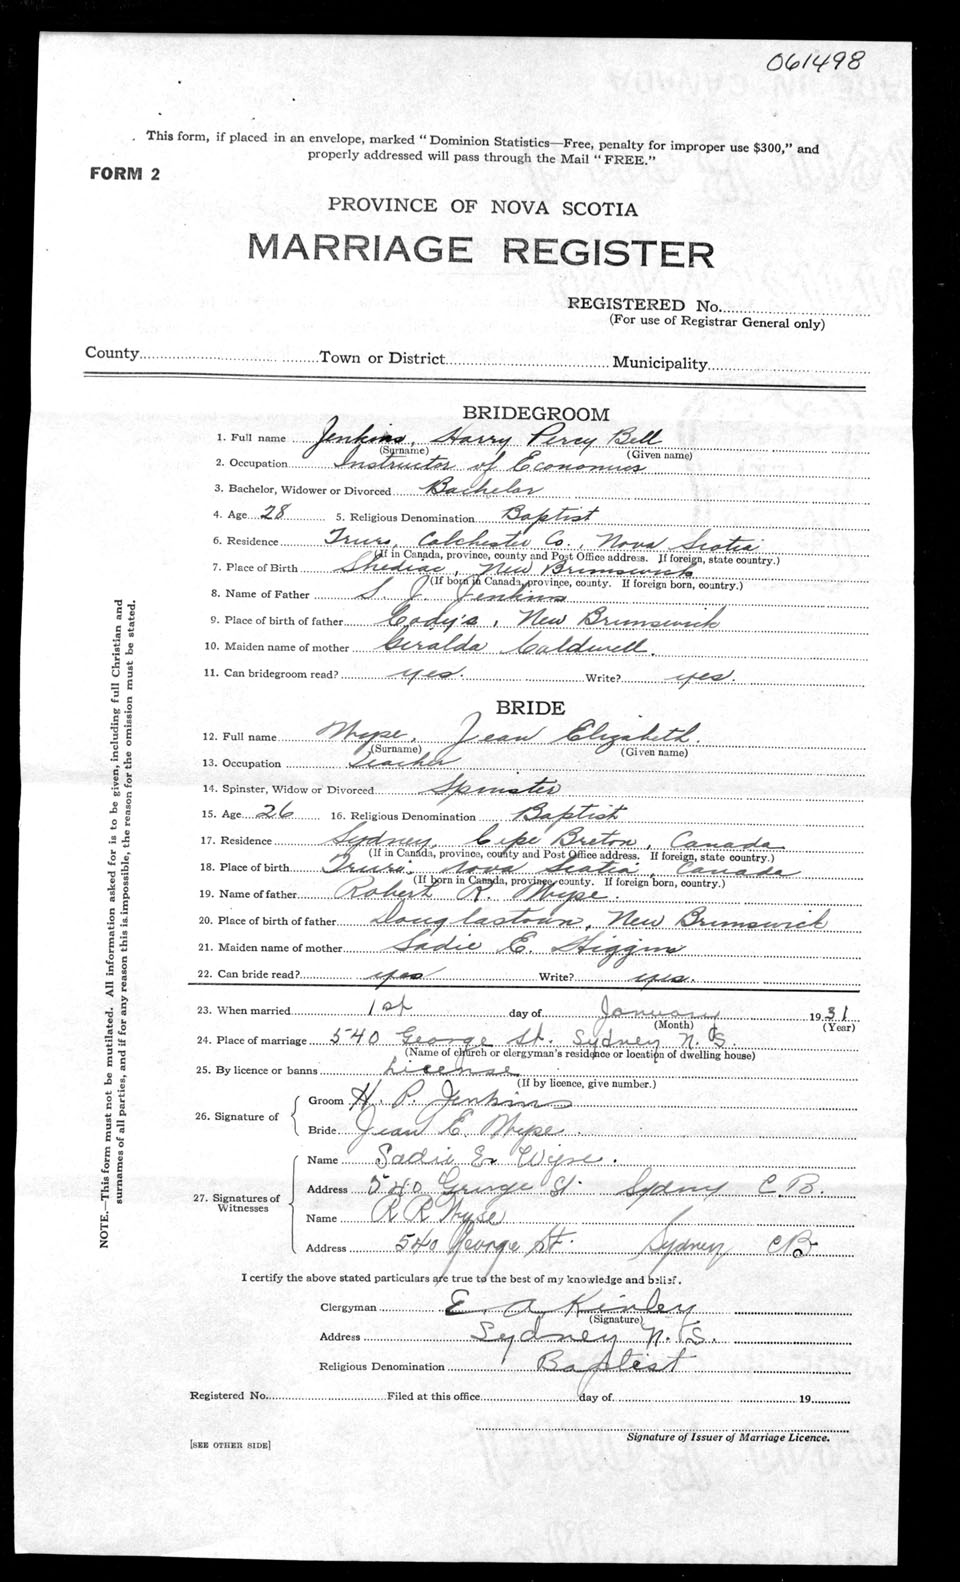 061498
This form, if placed in an envelope, marked "Dominion Statistics—Free, penalty for improper use $300," and
properly addressed will pass through the Mail "FREE."
FORM 2
PROVINCE OF NOVA SCOTIA
MARRIAGE REGISTER
REGISTERED No.
(For use of Registrar General only)
County Town or District Municipality
BRIDEGROOM
1. Full name Jenkins, Harry Percy Bell
(Surname) (Given name)
2. Occupation Instructor of Economics
3. Bachelor, Widower or Divorced Bachelor
4. Age 28 5. Religious Denomination Baptist
6. Residence Truro, Colchester Co., Nova Scotia
(If in Canada, province, county and Post Office address. If foreign, state country.)
7. Place of Birth Shediac, New Brunswick
(If born in Canada, province, county. If foreign born, country.)
8. Name of Father S. J. Jenkins
9. Place of birth of father Cody's, New Brunswick
10. Maiden name of mother Geralda Caldwell.
11. Can bridegroom read? yes. Write? yes.
BRIDE
12. Full name Wyse, Jean Elizabeth.
(Surname) (Given name)
13. Occupation Teacher
14. Spinster, Widow or Divorced Spinster
15. Age 26 16. Religious Denomination Baptist
17. Residence Sydney, Cape Breton, Canada
(If in Canada, province, county and Post Office address. If foreign, state country.)
18. Place of birth Truro, Nova Scotia, Canada
(If born in Canada, province, county. If foreign born, country.)
19. Name of father Robert R. Wyse.
20. Place of birth of father Douglastown, New Brunswick
21. Maiden name of mother Sadie E. Higgins
22. Can bride read? yes Write? yes.
23. When married 1st day of January 1931
(Month) (Year)
24. Place of marriage 540 George St. Sydney N.S.
(Name of church or clergyman's residence or location of dwelling house)
25. By licence or banns License
(If by licence, give number.)
26. Signature of
Groom H. P. Jenkins
Bride Jean E. Wyse.
27. Signatures of Witnesses
Name Sadie E. Wyse.
Address 540 George St. Sydney C.B.
Name R R Wyse
Address 540 George St. Sydney CB
I certify the above stated particulars are true to the best of my knowledge and belief.
Clergyman E. A. Kinley
(Signature)
Address Sydney N.S.
Religious Denomination Baptist
Registered No. Filed at this office day of 19
Signature of Issuer of Marriage Licence.
[SEE OTHER SIDE]
NOTE.—This form must not be mutilated. All information asked for is to be given, including full Christian and
surnames of all parties, and if for any reason this is impossible, the reason for the omission must be stated.